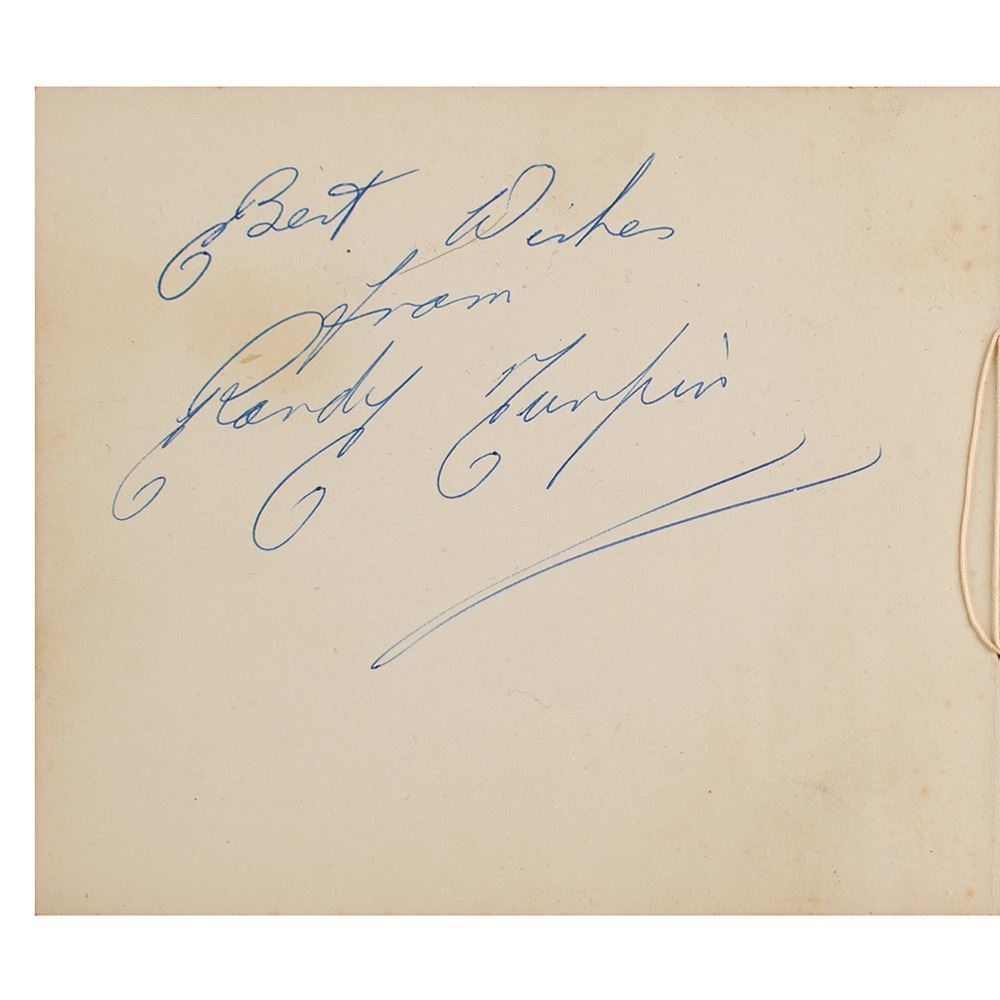 Best Wishes
from
Randy Turpin